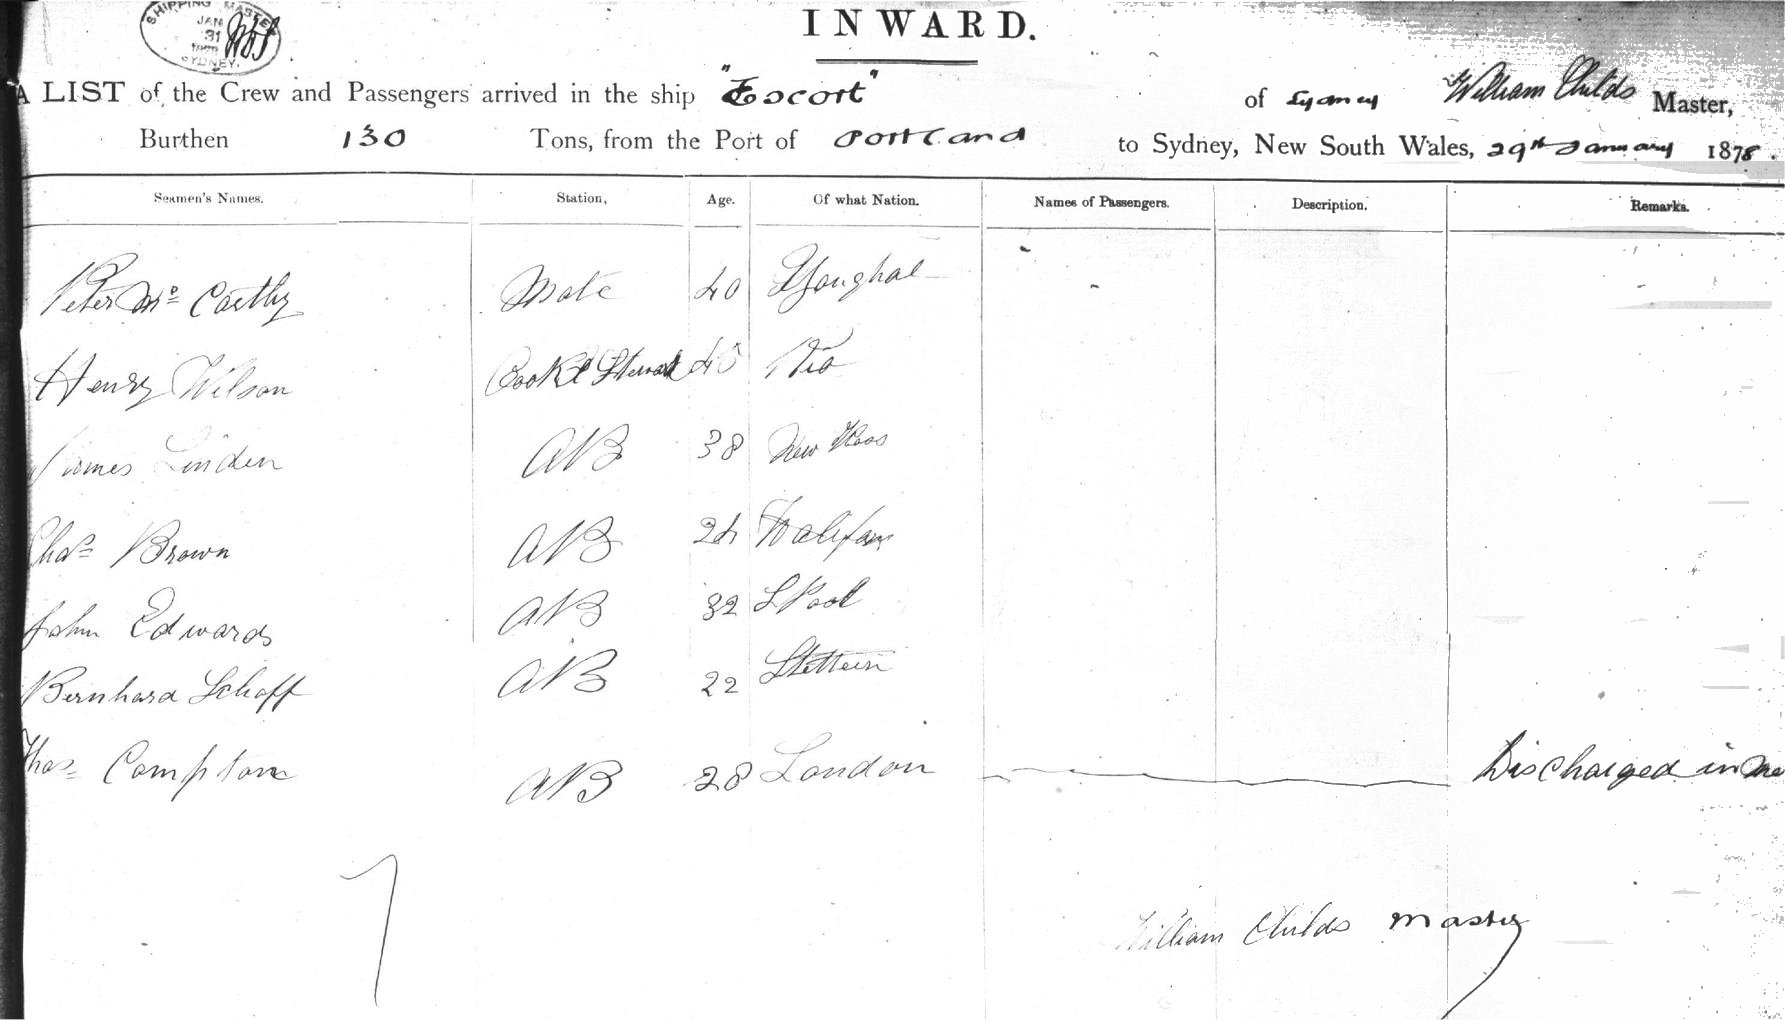 SHIPPING MASTER
JAN
31
SYDNEY.
INWARD.
A LIST of the Crew and Passengers arrived in the ship "Escort" of Sydney William Childs Master,
Burthen 130 Tons, from the Port of Portland to Sydney, New South Wales, 29th January 1878.
Seamen's Names. Station, Age. Of what Nation. Names of Passengers. Description. Remarks.
Peter Mc Carthy Mate 40 Youghal
Henry Wilson Cook & Steward 45 Rio
James Linden AB 38 New Ross
Chas Brown AB 24 Halifax
John Edwards AB 32 LPool
Bernhard Schoff AB 22 Stettein
Thos Compton AB 28 London Discharged in Me
7
William Childs Master